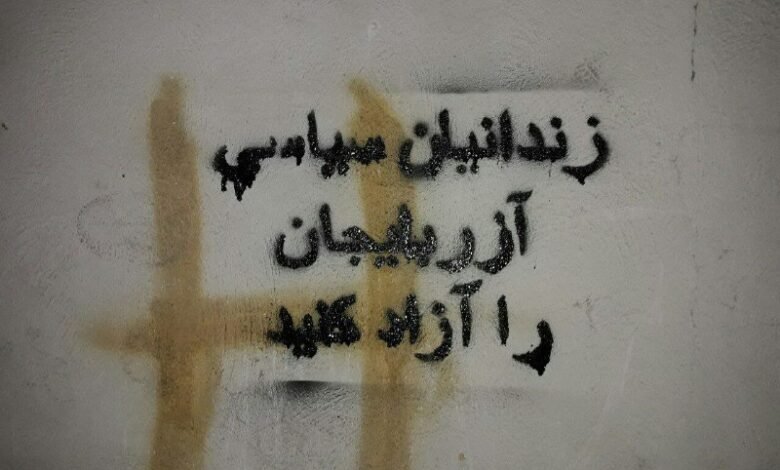 زندانیان سیاسي
آزربایجان
را آزاد کنید